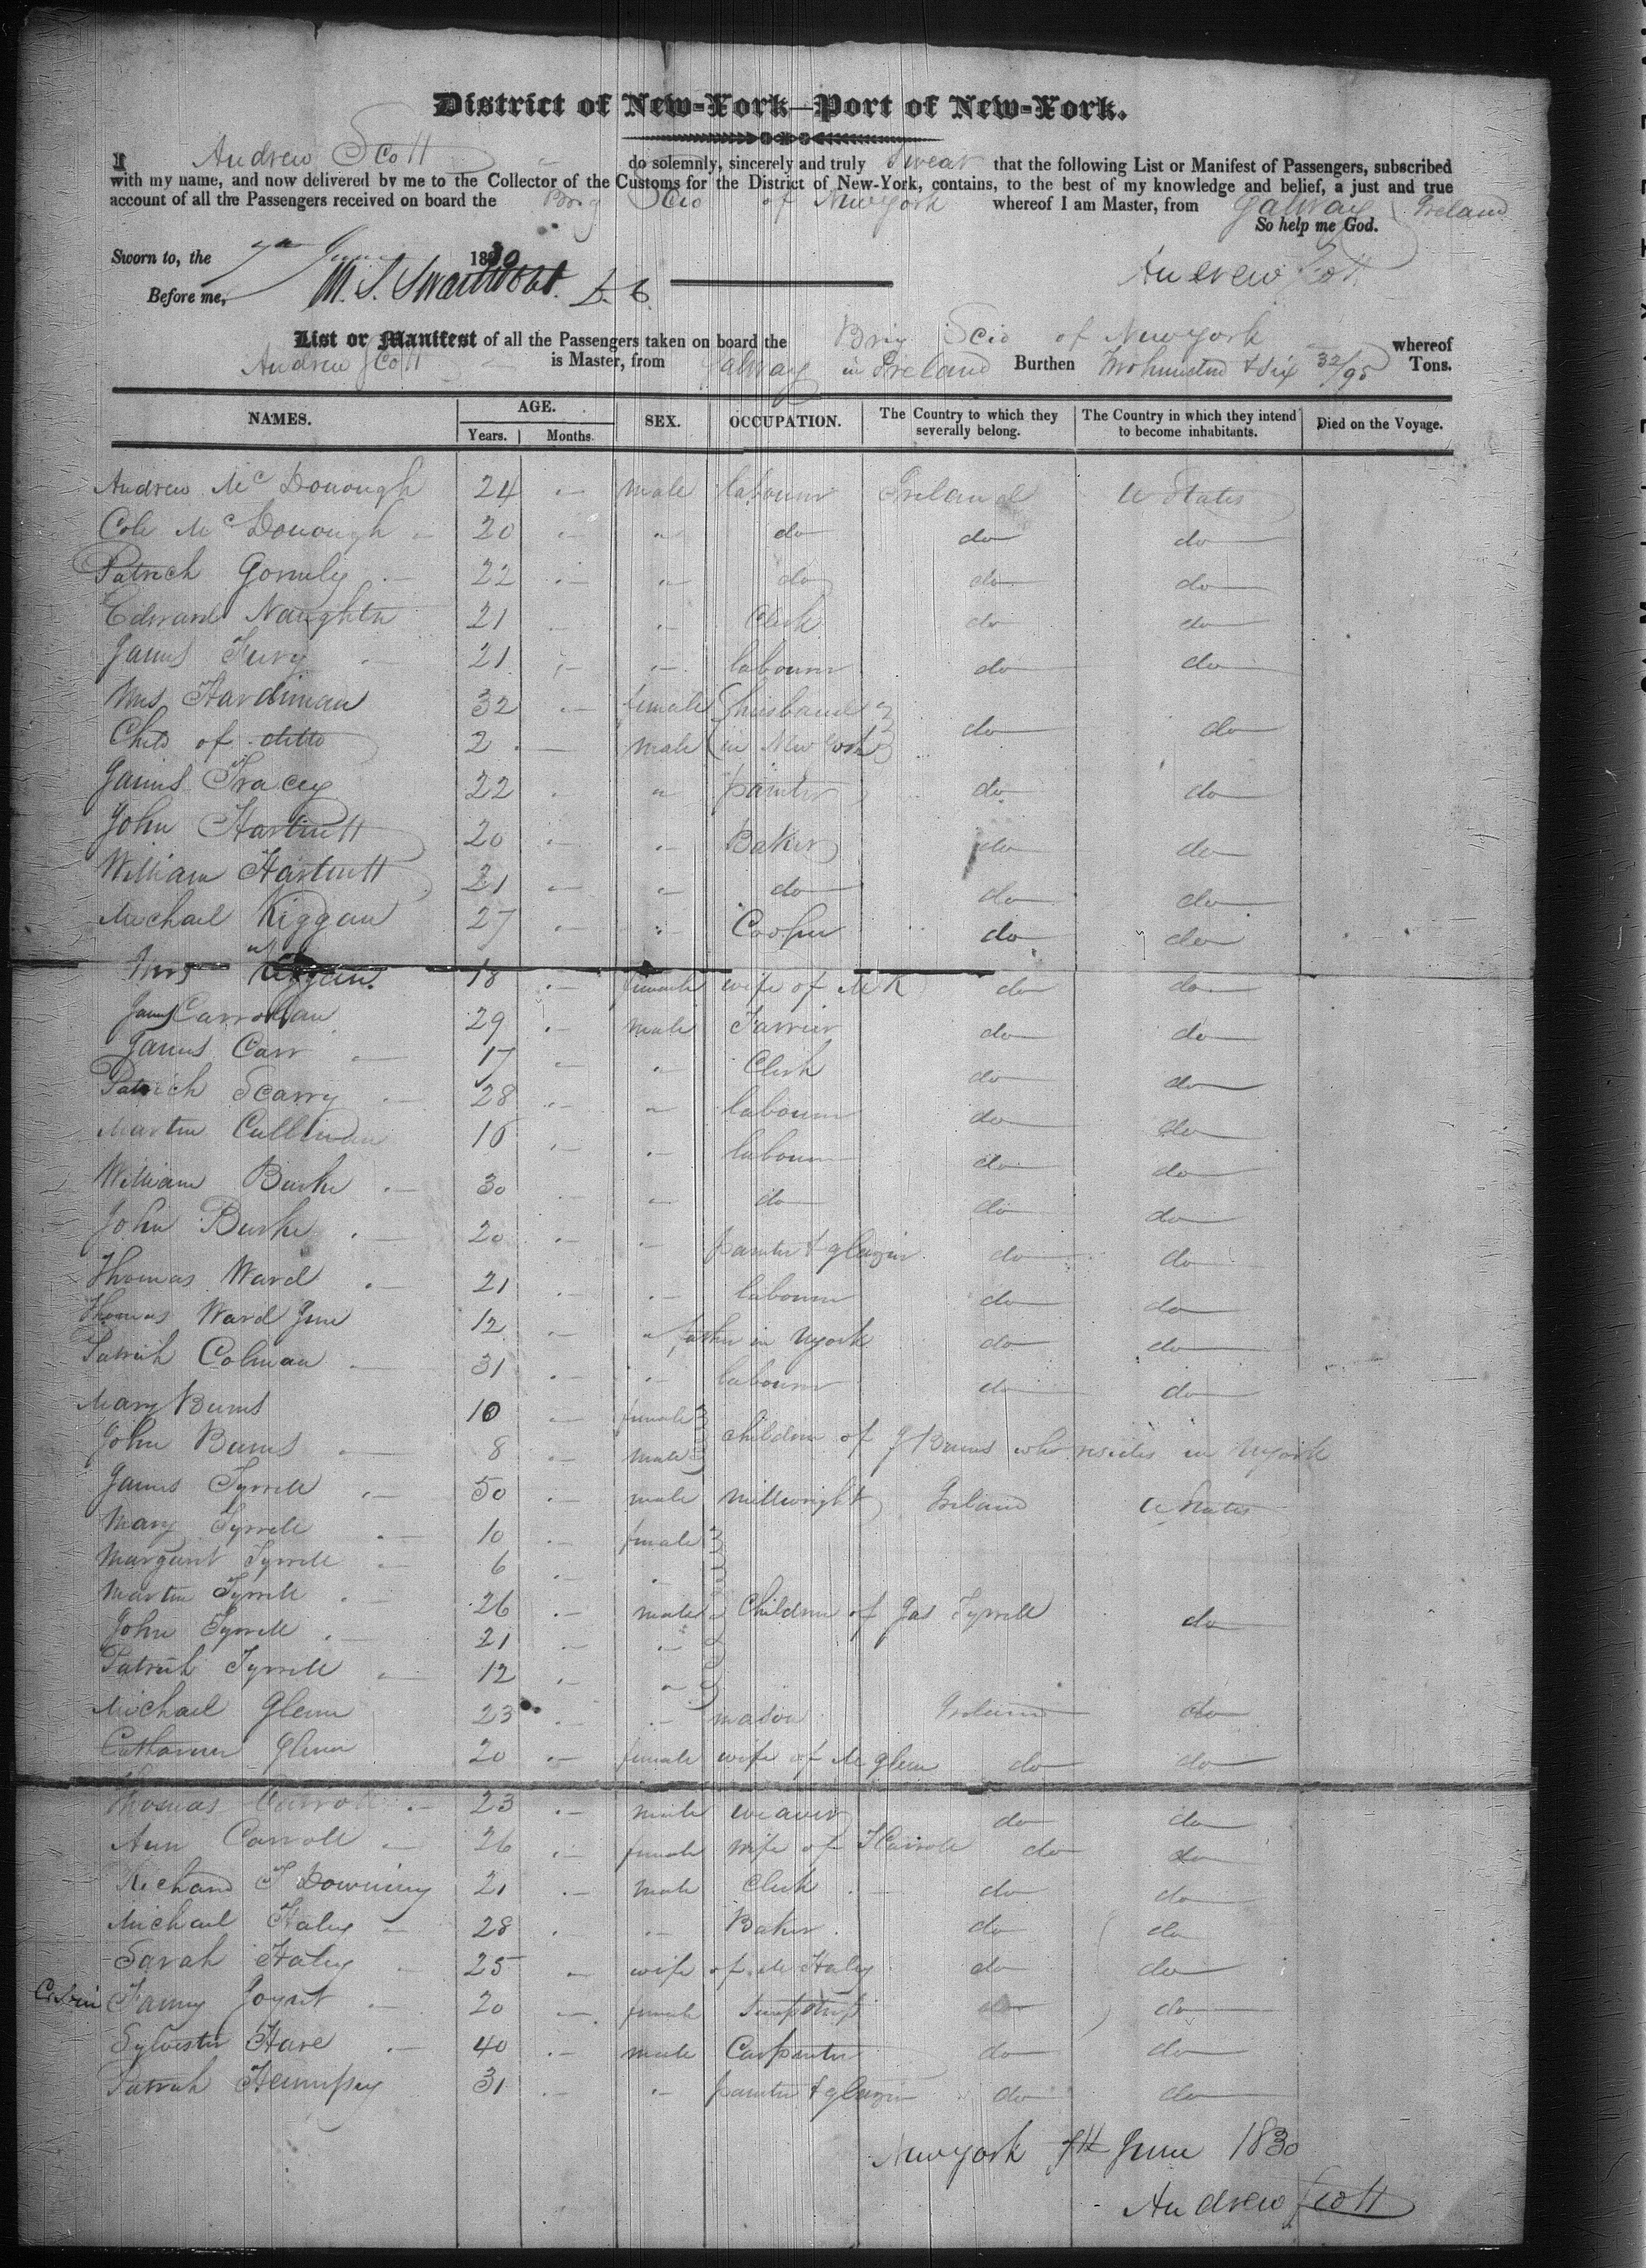 District of New-York—Port of New-York.
I Andrew Scott do solemnly, sincerely and truly Swear that the following List or Manifest of Passengers, subscribed
with my name, and now delivered by me to the Collector of the Customs for the District of New-York, contains, to the best of my knowledge and belief, a just and true
account of all the Passengers received on board the Brig Scio of New York whereof I am Master, from Galway Ireland
So help me God.
Sworn to, the 7th June 1830
Andrew Scott
Before me,
List or Manifest of all the Passengers taken on board the Brig Scio of New York whereof
Andrew Scott is Master, from Galway in Ireland Burthen Two hundred & six 32/95 Tons.
NAMES. AGE. Years. Months. SEX. OCCUPATION. The Country to which they severally belong. The Country in which they intend to become inhabitants. Died on the Voyage.
Andrew McDonough 24 male labourer Ireland U States
Cole McDonough 20 " do do do
Patrick Gormly 22 " do do do
Edward Naughtn 21 " Clerk do do
James Fury 21 " labourer do do
Mrs Hardiman 32 female husband do do
Child of ditto 2 male in New York
James Tracey 22 " painter do do
John Hartnett 20 " Baker do do
William Hartnett 21 " do do do
Michael Kiggan 27 " Cooper do do
Mrs Kiggan 18 female wife of M K do do
James Carrollan 29 male Farrier do do
James Carr 17 " Clerk do do
Patrick Scarry 28 " labourer do do
Martin Cullinan 16 " labourer do do
William Burke 30 " do do do
John Burke 20 " painter & glazier do do
Thomas Ward 21 " labourer do do
Thomas Ward Junr 12 " father in NYork do do
Patrick Colman 31 " labourer do do
Mary Burns 10 female
John Burns 8 male children of J Burns who resides in NYork
James Tyrrell 50 male millwright Ireland U States
Mary Tyrrell 10 female
Margaret Tyrrell 6 "
Martin Tyrrell 26 male Children of Jas Tyrrell do
John Tyrrell 21 "
Patrick Tyrrell 12 "
Michael Glenn 23 " mason Ireland do
Catharine Glenn 20 female wife of M Glenn do do
Thomas Carroll 23 male weaver do do
Ann Carroll 26 female wife of T Carroll do do
Richard T Downing 21 male Clerk do do
Michael Haley 28 " Baker do do
Sarah Haley 25 wife of M Haley do do
Cabin Fanny Joyart 20 female do do
Sylvester Hare 40 male Carpenter do do
Patrick Hempsey 31 " painter & glazier do do
New York 7th June 1830
Andrew Scott